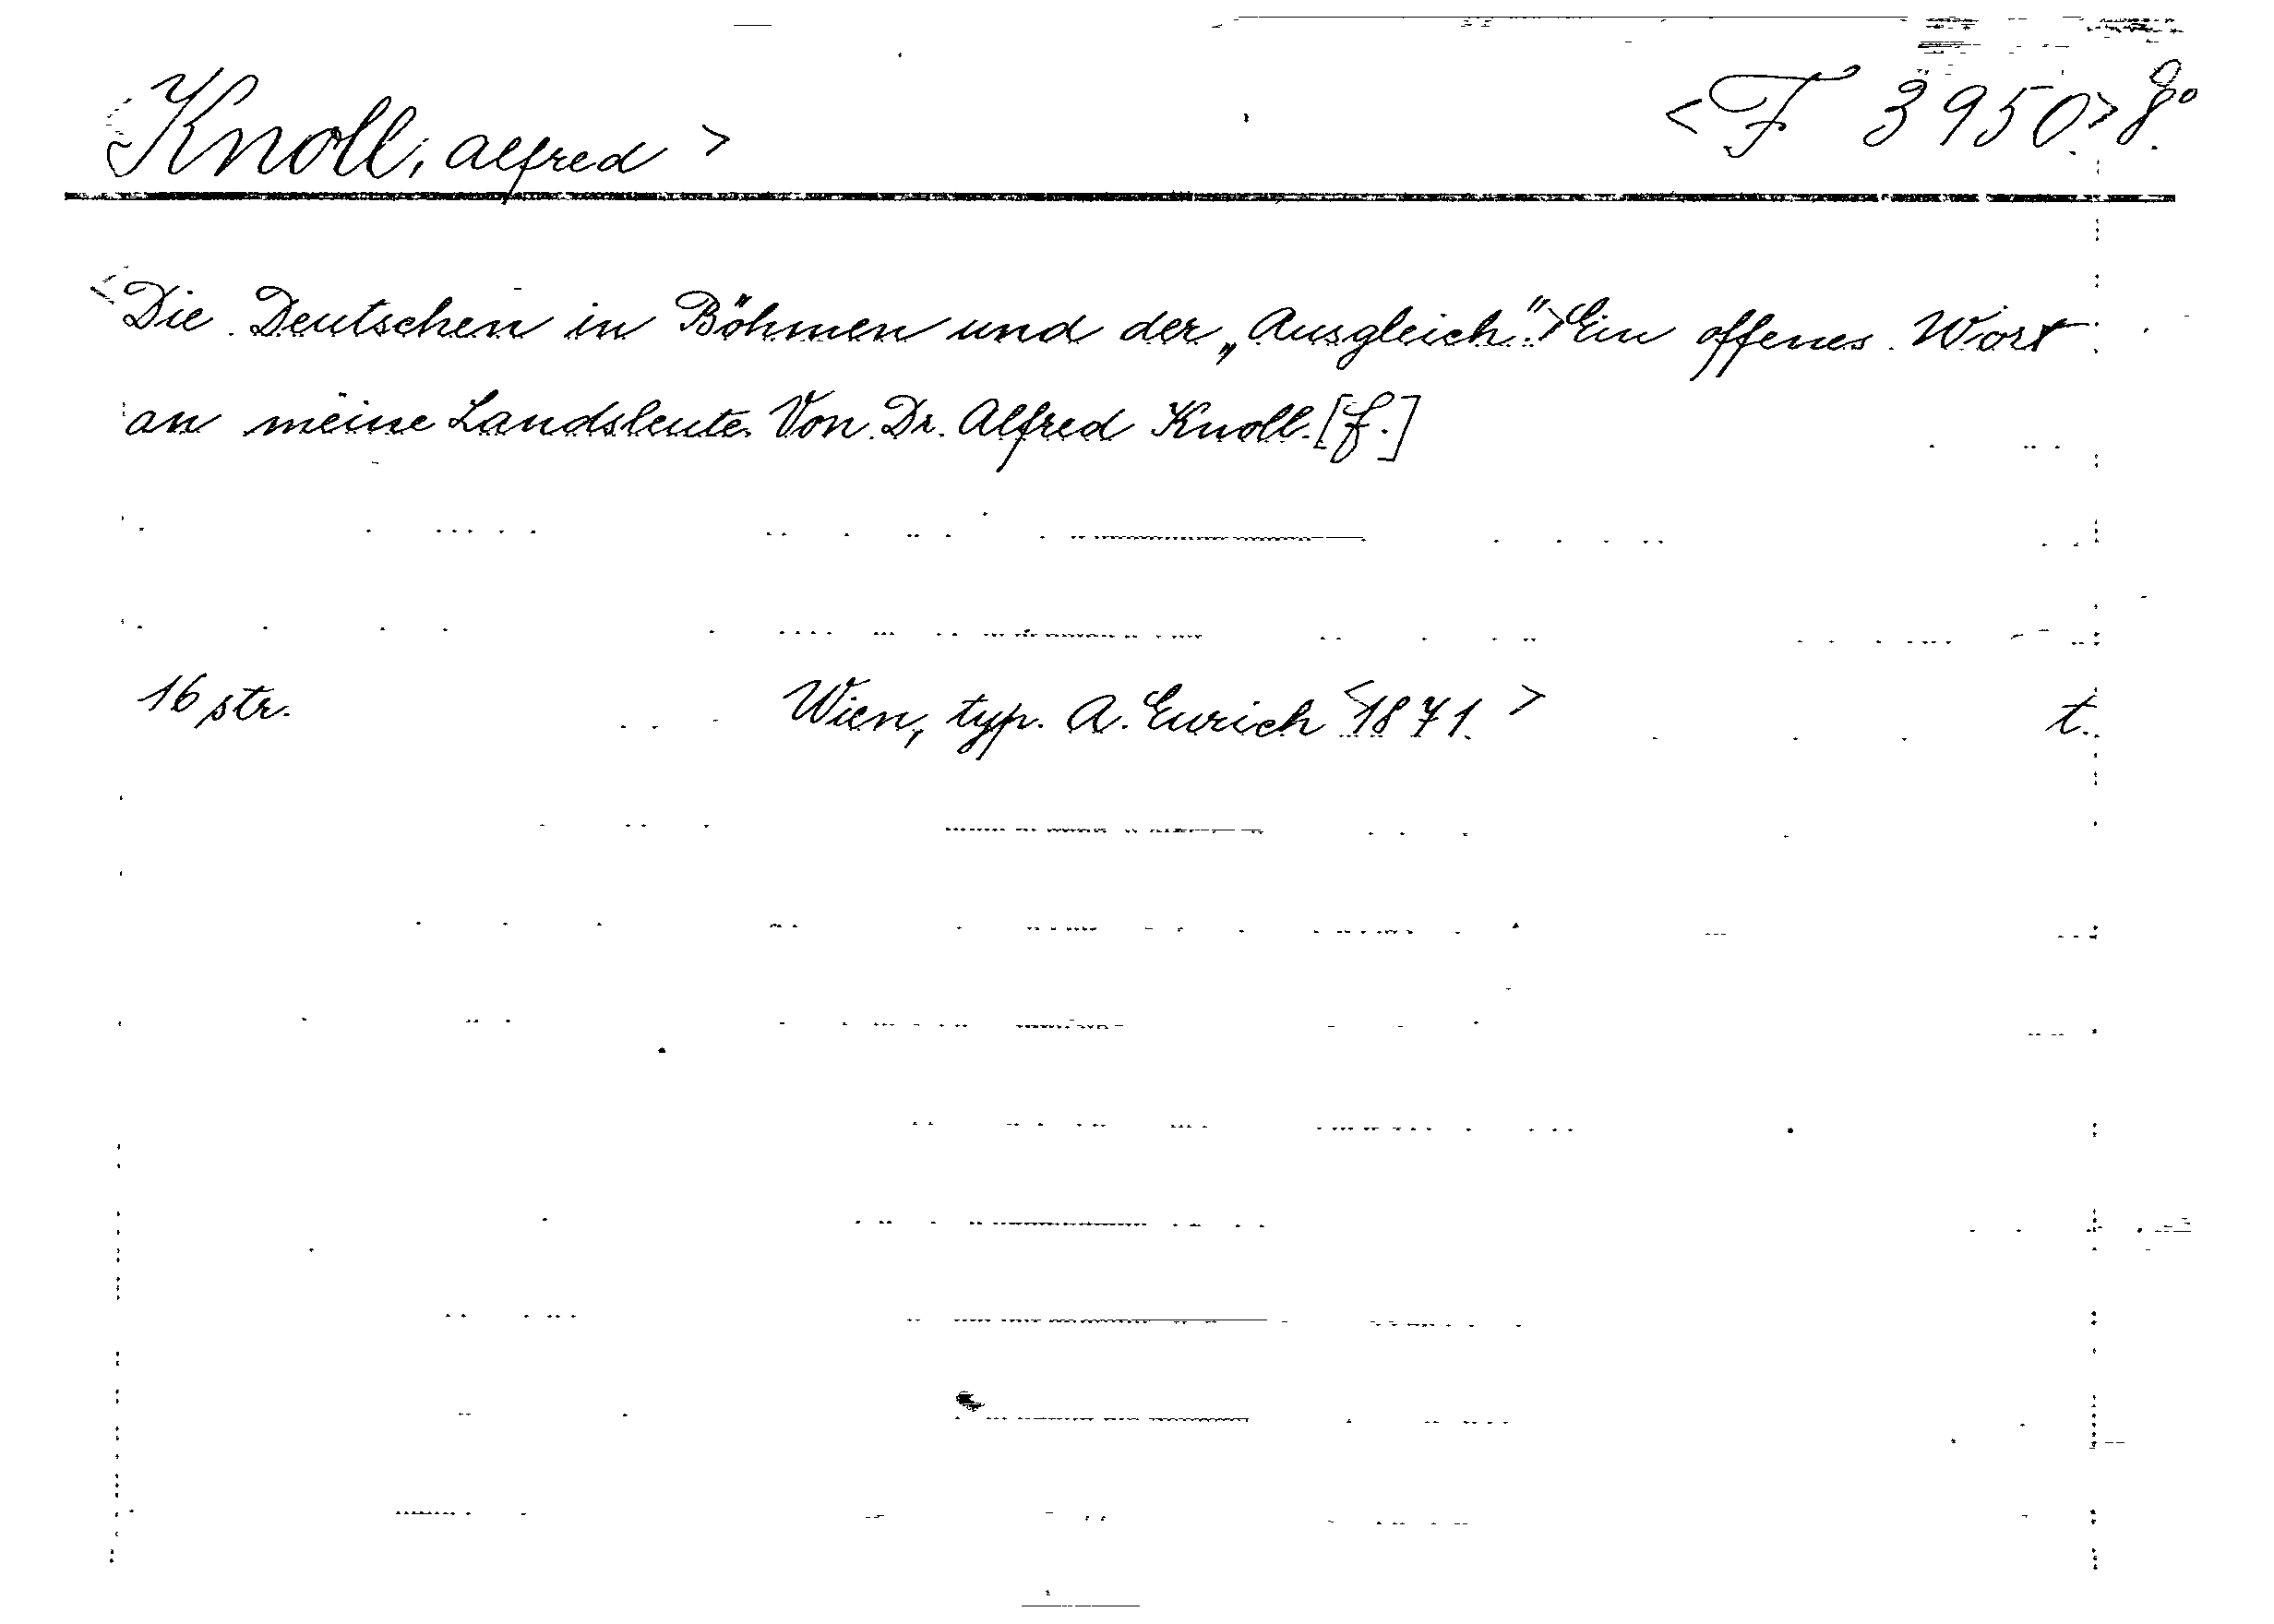 <Knoll, Alfred> <F 3950> 8°
<Die Deutschen in Böhmen und der „Ausgleich".> Ein offenes Wort
an meine Landsleute. Von Dr. Alfred Knoll. [f.]
16 str. Wien, typ. A. Eurich <1871.> t.